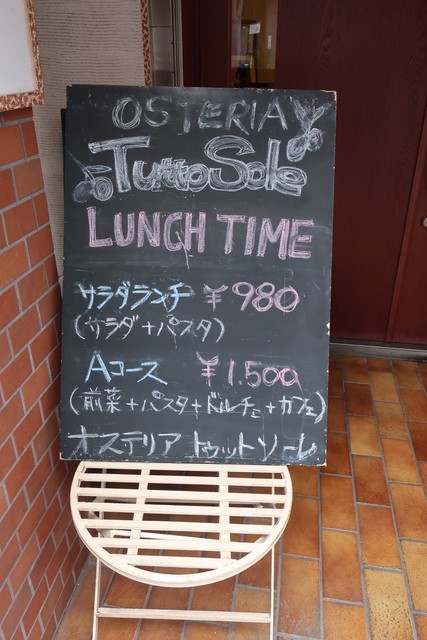 OSTERIA
Tutto Sole
LUNCH TIME
サラダランチ ¥980
(サラダ+パスタ)
Aコース ¥1.500
(前菜+パスタ+ドルチェ+カフェ)
オステリア トゥットソーレ